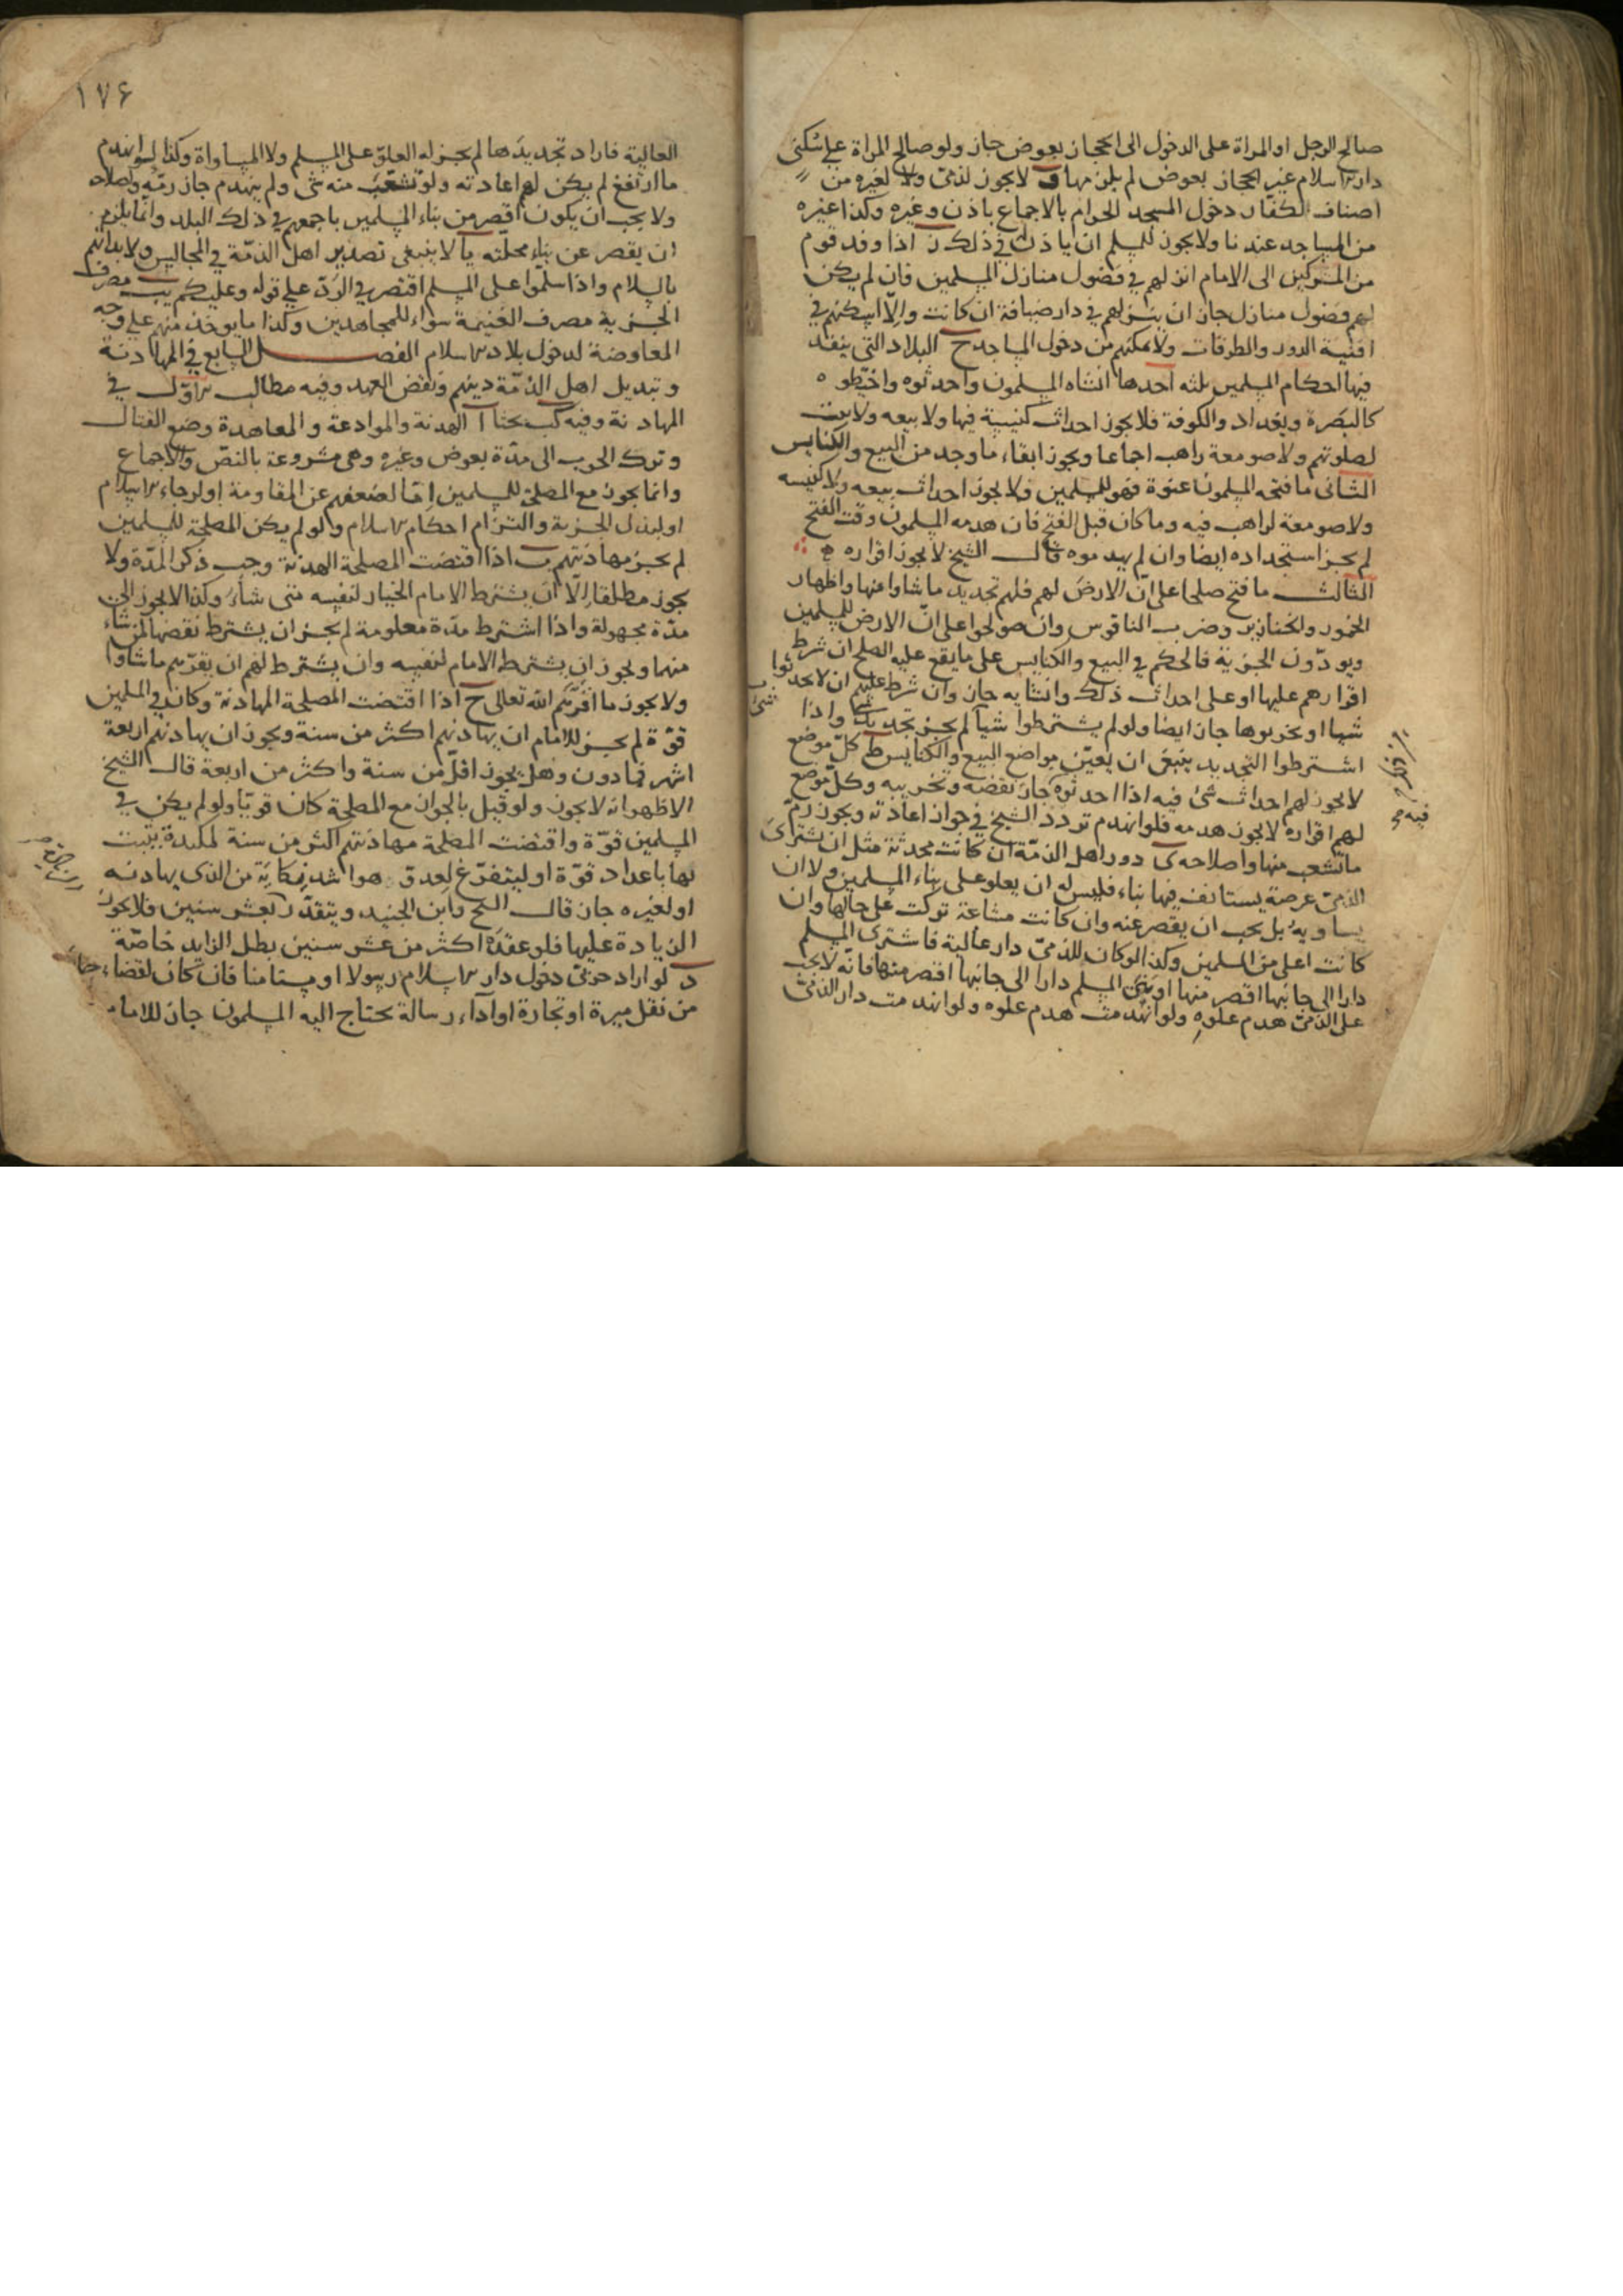 صالح الرجل او المراة على الدخول الى الحجاز بعوض جاز ولو صالح المراة على سكنى
دار الاسلام غير الحجاز بعوض لم يلزمها و لا يجوز لذمى ولا لغيره من
اصناف الكفار دخول المسجد الحرام بالاجماع باذن وغيره وكذا غيره
من المساجد عندنا ولا يجوز للمسلم ان ياذن فى ذلك ز اذا وفد قوم
من المشركين الى الامام انزلهم فى فضول منازل المسلمين فان لم يكن
لهم فضول منازل جاز ان ينزلهم فى دار ضيافة ان كانت والا اسكنهم فى
افنية الدور والطرقات ولا يمكنهم من دخول المساجد ح البلاد التى ينفذ
فيها احكام المسلمين ثلثه احدها انشاه المسلمون واحدثوه واختطوه
كالبصرة وبغداد والكوفة فلا يجوز احداث كنيسة فيها ولا بيعه ولا بيت
لصلوتهم ولا صومعة راهب اجماعا ويجوز ابقاء ما وجد من البيع والكنايس
الثانى ما فتحه المسلمون عنوة فهو للمسلمين ولا يجوز احداث بيعه ولا كنيسه
ولا صومعة لراهب فيه وما كان قبل الفتح فان هدمه المسلمون وقت الفتح
لم يجز استجداده ايضا وان لم يهدموه قال الشيخ لا يجوز اقراره
الثالث ما فتح صلحا على ان الارض لهم فلهم تجديد ما شاوا منها واظهار
الخمور والخنازير وضرب الناقوس وان صولحوا على ان الارض للمسلمين
ويودون الجزية فالحكم فى البيع والكنايس على ما يقع عليه الصلح ان شرط
اقرارهم عليها او على احداث ذلك وانشايه جاز وان شرط عليهم ان لا يحدثوا
شيا او يخربوها جاز ايضا ولو لم يشترطوا شيا لم يجز تجديد شئ واذا
اشترطوا التجديد ينبغى ان يعين مواضع البيع والكنايس ط كل موضع
لا يجوز لهم احداث شئ فيه اذا احدثوه جاز نقضه وتخريبه وكل موضع
لهم اقراره لا يجوز هدمه فلو انهدم تردد الشيخ فى جواز اعادته ويجوز رم
ما تشعب منها واصلاحه ى دور اهل الذمة ان كانت محدثة مثل ان يشترى
الذمى عرصة يستانف فيها بناء فليس له ان يعلو على بناء المسلمين ولا ان
يساويه بل يجب ان يقصر عنه وان كانت مشاعة تركت على حالها وان
كانت اعلى من المسلمين وكذا لو كان للذمى دار عالية فاشترى المسلم
دارا الى جانبها اقصر منها او بنى المسلم دارا الى جانبها اقصر منها فانه لا يجب
على الذمى هدم علوه ولو انهدمت هدم علوه ولو انهدمت دار الذمى
١٧۶
العالية فاراد تجديدها لم يجز له العلو على المسلم ولا المساواة وكذا لو انهدم
ما ارتفع لم يكن لهم اعادته ولو تشعب منه شى ولم ينهدم جاز رمه واصلاحه
ولا يجب ان يكون اقصر من بناء المسلمين باجمعهم فى ذلك البلد وانما يلزم
ان يقصر عن بناء محلته يا لا ينبغى تصدير اهل الذمة فى المجالس ولا بداتهم
بالسلام واذا سلموا على المسلم اقتصر فى الرد على قوله وعليكم يب مصرف
الجزية مصرف الغنيمة سواء للمجاهدين وكذا ما يوخذ منهم على وجه
المعاوضة لدخول بلاد الاسلام الفصل السابع فى المهادنة
وتبديل اهل الذمة دينهم ونقض العهد وفيه مطالب الاول فى
المهادنة وفيه كب بحثا ا الهدنة والموادعة والمعاهدة وضع القتال
وترك الحرب الى مدة بعوض وغيره وهى مشروعة بالنص والاجماع
وانما يجوز مع المصلحة للمسلمين اما لضعفهم عن المقاومة او لرجاء الاسلام
او لبذل الجزية والتزام احكام الاسلام ولو لم يكن المصلحة للمسلمين
لم يجز مهادنتهم ب اذا اقتضت المصلحة الهدنة وجب ذكر المدة ولا
يجوز مطلقا الا ان يشترط الامام الخيار لنفسه متى شاء وكذا لا يجوز الى
مدة مجهولة واذا اشترط مدة معلومة لم يجز ان يشترط نقضها لمن شاء
منهما ويجوز ان يشترط الامام لنفسه وان يشترط لهم ان يقرهم ما شاوا
ولا يجوز ما اقركم الله تعالى ح اذا اقتضت المصلحة المهادنة وكان فى المسلمين
قوة لم يجز للامام ان يهادنهم اكثر من سنة ويجوز ان يهادنهم اربعة
اشهر فما دون وهل يجوز اقل من سنة واكثر من اربعة قال الشيخ
الاظهر انه لا يجوز ولو قيل بالجواز مع المصلحة كان قويا ولو لم يكن فى
المسلمين قوة واقتضت المصلحة مهادنتهم اكثر من سنة لمكيدة يتثبت
بها باعداد قوة او ليتفرغ لعدو هو اشد نكاية من الذى يهادنه
او لغيره جاز قال الشيخ وابن الجنيد ويتقدر بعشر سنين فلا يجوز
الزيادة عليها فلو عقده اكثر من عشر سنين بطل الزايد خاصة
د لو اراد حربى دخول دار الاسلام رسولا او مستامنا فان كان لقضاء حاجة
من نقل ميرة او تجارة او آداء رسالة يحتاج اليه المسلمون جاز للامام